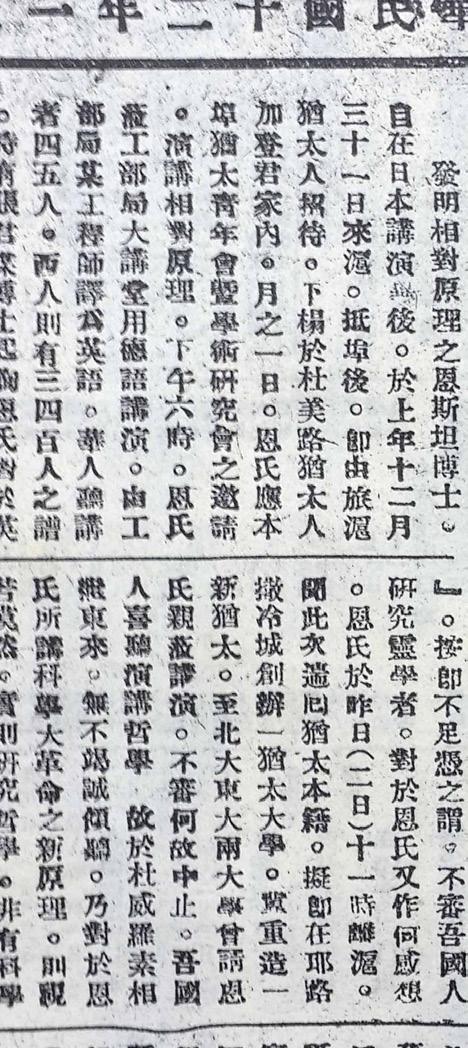 民國十二年一
發明相對原理之恩斯坦博士。
自在日本講演畢後。於上年十二月
三十一日來滬。抵埠後。卽由旅滬
猶太人招待。下榻於杜美路猶太人
加登君家內。月之一日。恩氏應本
埠猶太靑年會暨學術硏究會之邀請
。演講相對原理。下午六時。恩氏
蒞工部局大講堂用德語講演。由工
部局某工程師譯爲英語。華人聽講
者四五人。西人則有三四百人之譜
。時有張君某博士起詢恩氏對於英
』。按卽不足憑之謂。不審吾國人
硏究靈學者。對於恩氏又作何感想
。恩氏於昨日(二日)十一時離滬。
聞此次遄囘猶太本籍。擬卽在耶路
撒冷城創辦一猶太大學。冀重造一
新猶太。至北大東大兩大學曾請恩
氏親蒞講演。不審何故中止。吾國
人喜聽演講哲學 故於杜威羅素相
繼東來。無不竭誠傾聽。乃對於恩
氏所講科學大革命之新原理。則視
若漠然。實則硏究哲學。非有科學